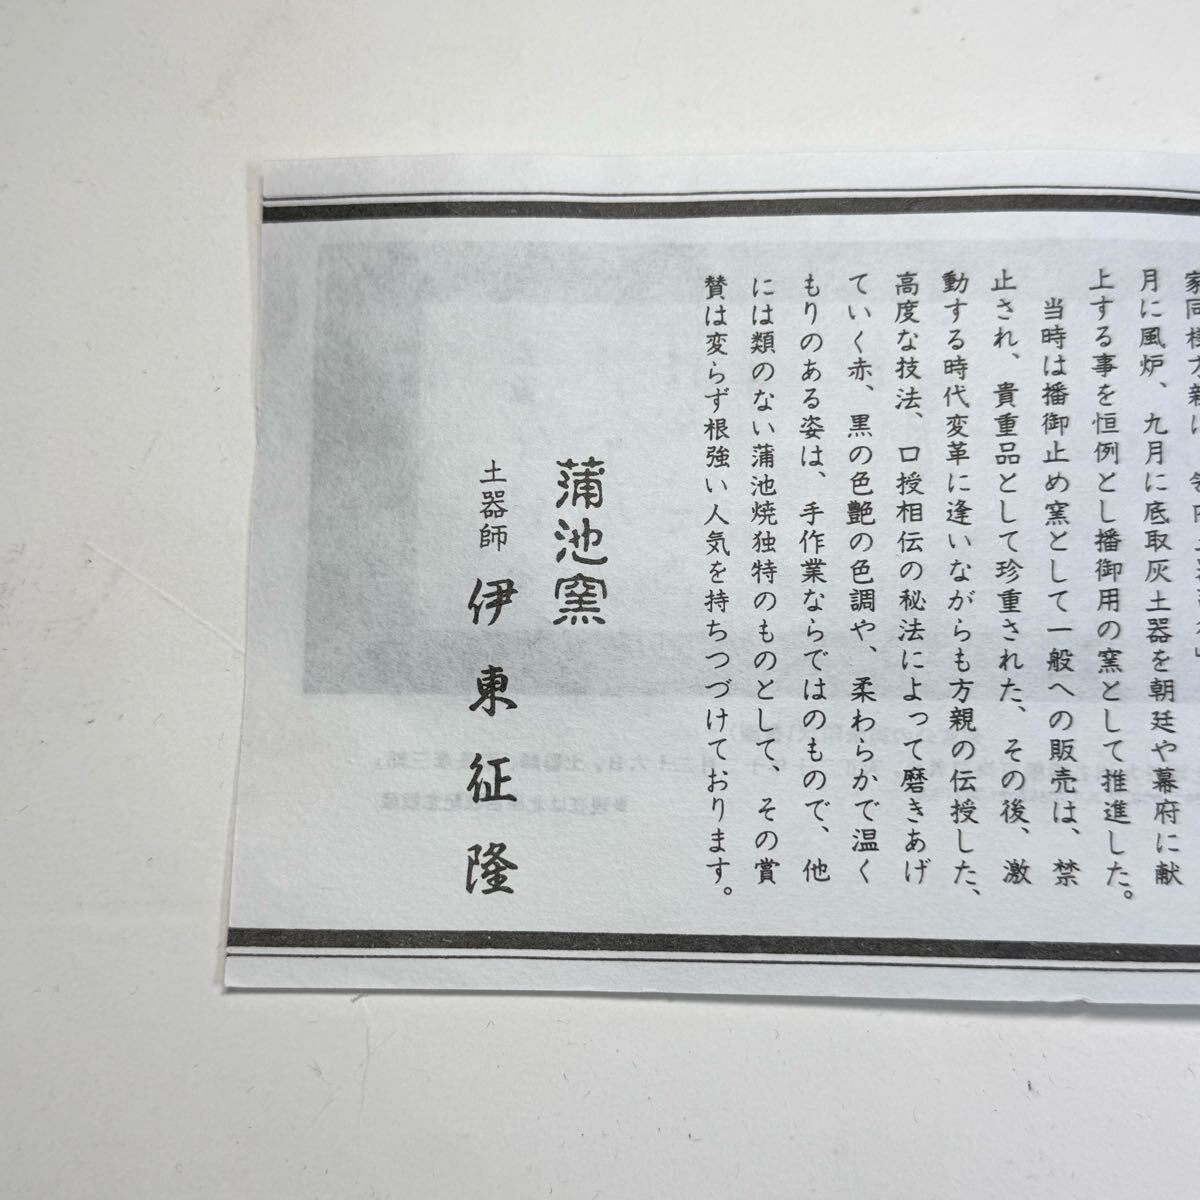 月に風炉、九月に底取灰土器を朝廷や幕府に献
上する事を恒例とし播御用の窯として推進した。
当時は播御止め窯として一般への販売は、禁
止され、貴重品として珍重された、その後、激
動する時代変革に逢いながらも方親の伝授した、
高度な技法、口授相伝の秘法によって磨きあげ
ていく赤、黒の色艶の色調や、柔わらかで温く
もりのある姿は、手作業ならではのもので、他
には類のない蒲池焼独特のものとして、その賞
賛は変らず根強い人気を持ちつづけております。
蒲池窯
土器師 伊東征隆